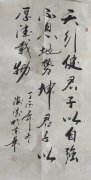 天行健君子以自强
不息地势坤君子以
厚德载物